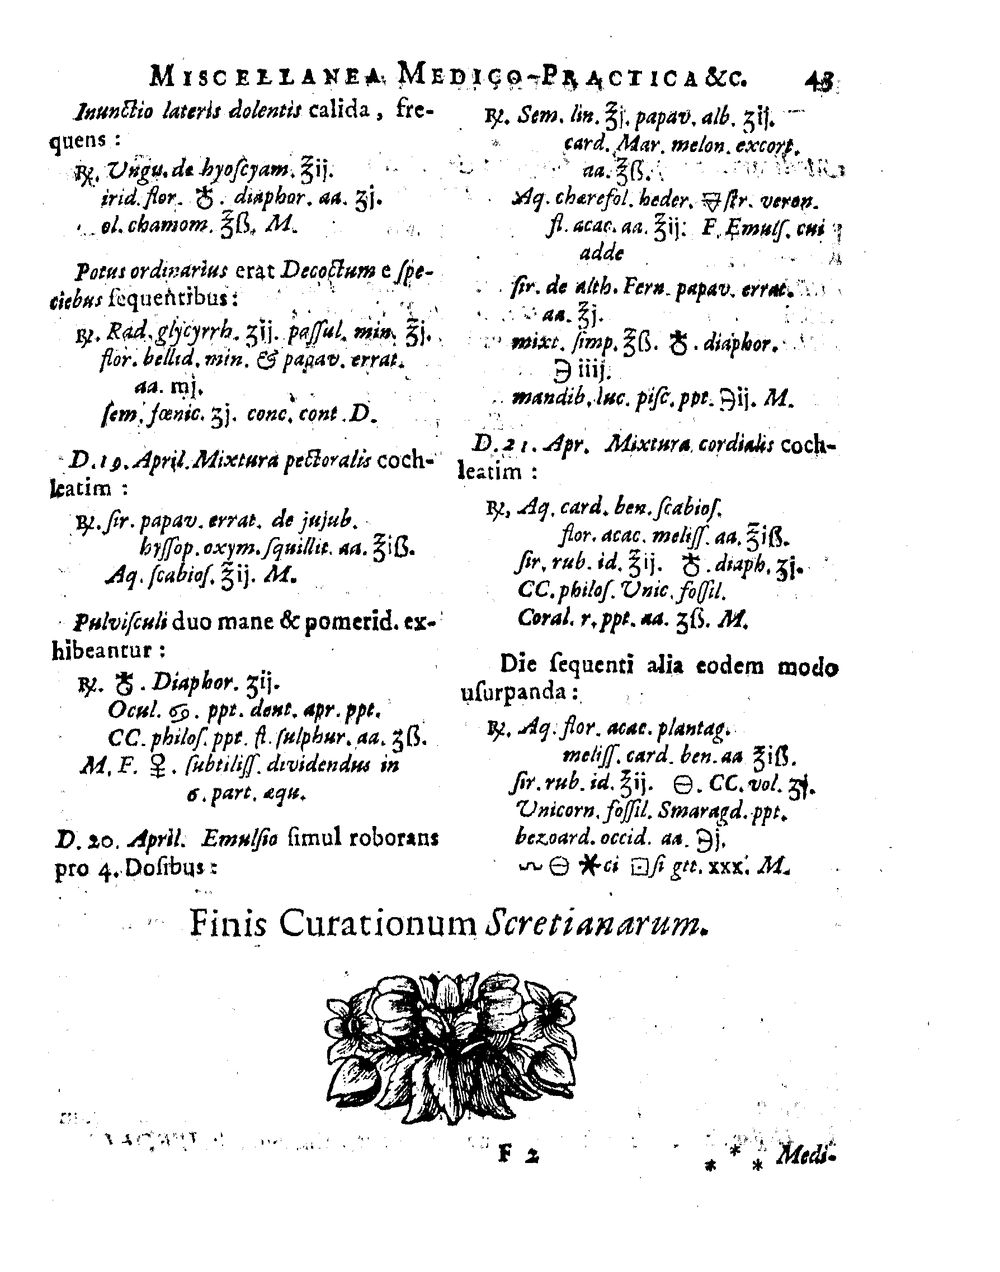 MISCELLANEA MEDICO-PRACTICA &c. 43
Inunctio lateris dolentis calida, fre-
quens:
℞. Ungu. de hyoſcyam. ℥ij.
irid. flor. ♁. diaphor. aa. ʒj.
ol. chamom. ℥ß. M.
Potus ordinarius erat Decoctum e ſpe-
ciebus ſequentibus:
℞. Rad. glycyrrh. ʒij. paſſul. min. ℥j.
flor. bellid. min. & papav. errat.
aa. mj.
ſem. fœnic. ʒj. conc. cont. D.
D. 19. April. Mixtura pectoralis coch-
leatim:
℞. ſir. papav. errat. de jujub.
hyſſop. oxym. ſquillit. aa. ℥iß.
Aq. ſcabioſ. ℥ij. M.
Pulviſculi duo mane & pomerid. ex-
hibeantur:
℞. ♁. Diaphor. ʒij.
Ocul. ♋. ppt. dent. apr. ppt.
CC. philoſ. ppt. fl. ſulphur. aa. ʒß.
M. F. ♀. ſubtiliſſ. dividendus in
6. part. æqu.
D. 20. April. Emulſio ſimul roborans
pro 4. Doſibus:
℞. Sem. lin. ℥j. papav. alb. ʒij.
card. Mar. melon. excort.
aa. ℥ß.
Aq. chærefol. heder. ſtr. veron.
fl. acac. aa. ℥ij. F. Emulſ. cui
adde
ſir. de alth. Fern. papav. errat.
aa. ℥j.
mixt. ſimp. ℥ß. ♁. diaphor.
℈iiij.
mandib. luc. piſc. ppt. ℈ij. M.
D. 21. Apr. Mixtura cordialis coch-
leatim:
℞. Aq. card. ben. ſcabioſ.
flor. acac. meliſſ. aa. ℥iß.
ſir. rub. id. ℥ij. ♁. diaph. ʒj.
CC. philoſ. Unic. foſſil.
Coral. r. ppt. aa. ʒß. M.
Die ſequenti alia eodem modo
uſurpanda:
℞. Aq. flor. acac. plantag.
meliſſ. card. ben. aa ℥iß.
ſir. rub. id. ℥ij. ⊖. CC. vol. ʒj.
Unicorn. foſſil. Smaragd. ppt.
bezoard. occid. aa. ℈j.
⊖ ✱ci ⊡ſi gtt. xxx. M.
Finis Curationum Scretianarum.
F 2
* * * Medi-